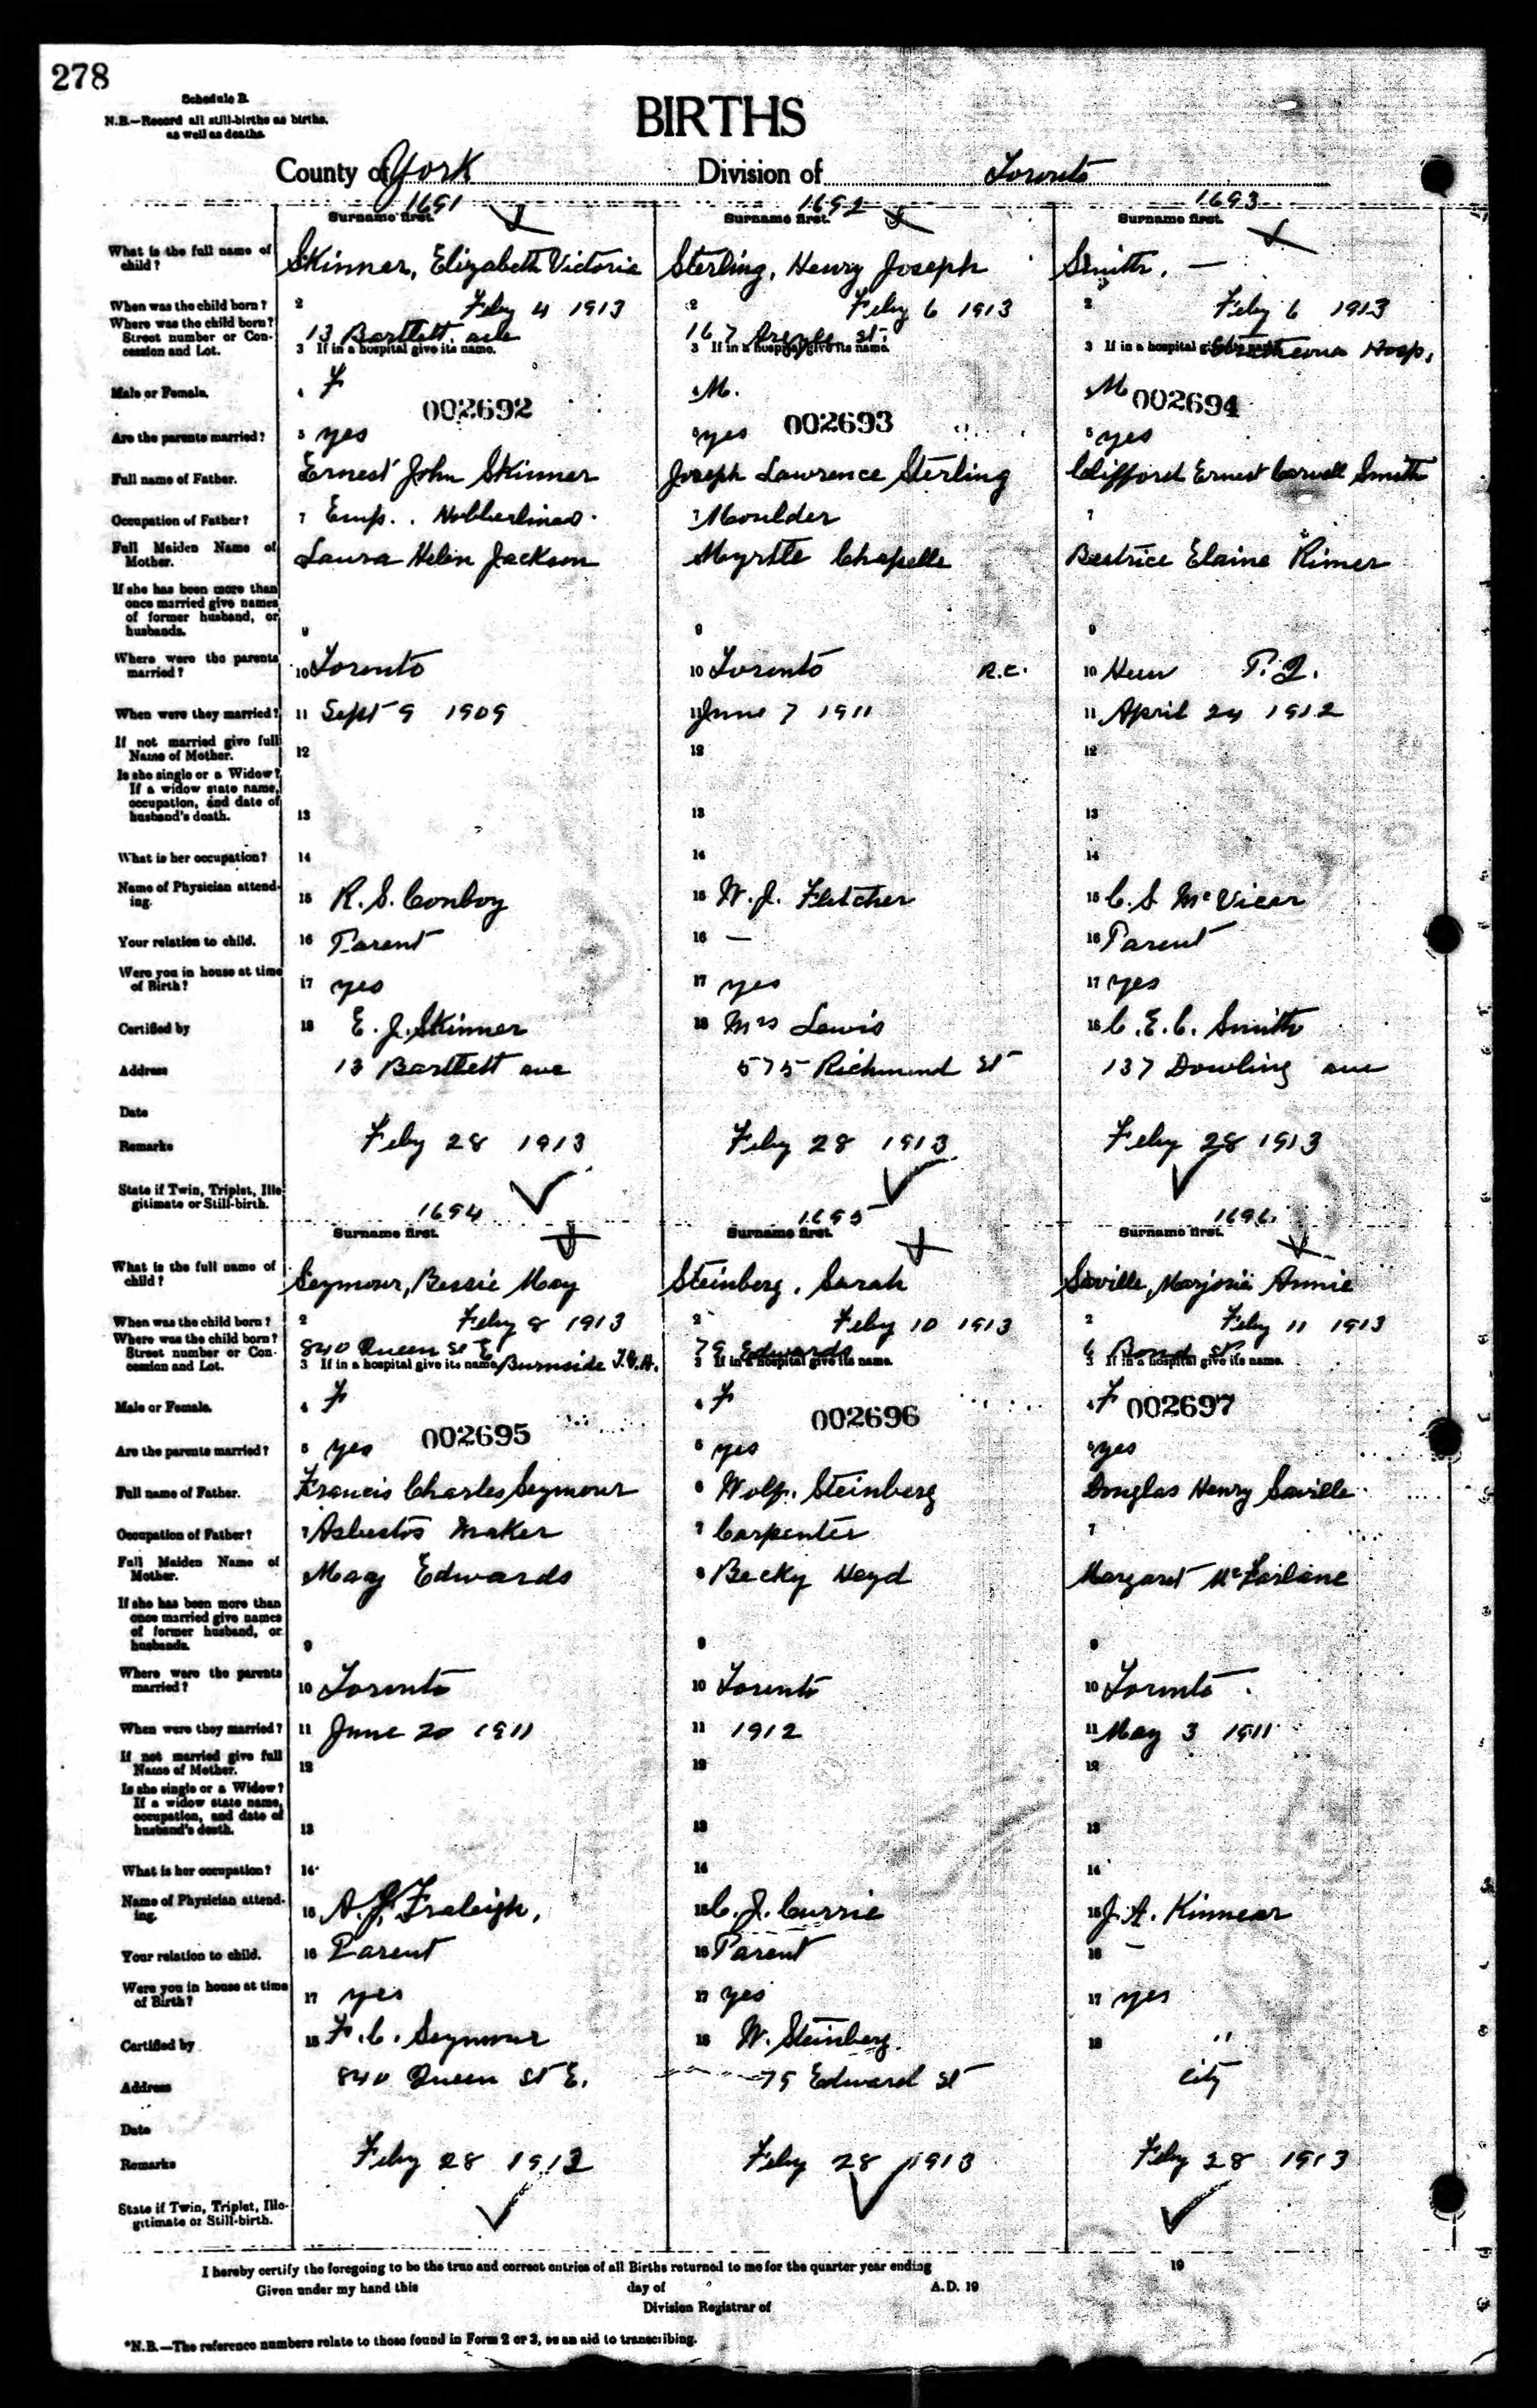 278
Schedule B.
N.B.—Record all still-births as births,
as well as deaths.
BIRTHS
County of York Division of Toronto
1691 1692 1693
Surname first. Surname first. Surname first.
What is the full name of child? Skinner, Elizabeth Victoria Sterling, Henry Joseph Smith, —
When was the child born? 2 Feby 4 1913 2 Feby 6 1913 2 Feby 6 1913
Where was the child born? Street number or Concession and Lot. 13 Bartlett ave 167 st.
3 If in a hospital give its name. 3 If in a hospital give its name. 3 If in a hospital Hosp,
Male or Female. 4 F M. M
002692 002693 002694
Are the parents married? 5 yes yes 5 yes
Full name of Father. Ernest John Skinner Joseph Lawrence Sterling Clifford Ernest Carvell Smith
Occupation of Father? 7 Emp. 7 Moulder 7
Full Maiden Name of Mother. Laura Helen Jackson Myrtle Chapelle Beatrice Elaine Rimer
If she has been more than once married give names of former husband, or husbands. 9 9 9
Where were the parents married? 10 Toronto 10 Toronto R.C. 10
When were they married? 11 Sept 9 1909 11 June 7 1911 11 April 24 1912
If not married give full Name of Mother. 12 12 12
Is she single or a Widow? If a widow state name, occupation, and date of husband's death. 13 13 13
What is her occupation? 14 14 14
Name of Physician attending. 15 R. S. Conboy 15 W. J. Fletcher 15 C. S McVicar
Your relation to child. 16 Parent 16 — 16 Parent
Were you in house at time of Birth? 17 yes 17 yes 17 yes
Certified by 18 E. J. Skinner 18 Mrs Lewis 18 C. E. C. Smith
Address 13 Bartlett ave 575 Richmond St 137 Dowling ave
Date
Remarks Feby 28 1913 Feby 28 1913 Feby 28 1913
State if Twin, Triplet, Illegitimate or Still-birth.
1694 1695 1696
Surname first. Surname first. Surname first.
What is the full name of child? Seymour, Bessie May Steinberg, Sarah Saville, Marjorie Annie
When was the child born? 2 Feby 8 1913 2 Feby 10 1913 2 Feby 11 1913
Where was the child born? Street number or Concession and Lot. 840 Queen St E 79 Edwards 6 Bond St.
3 If in a hospital give its name. Burnside T.G.H. 3 If in a hospital give its name. 3 If in a hospital give its name.
Male or Female. 4 F 4 F 4 F
002695 002696 002697
Are the parents married? 5 yes 5 yes 5 yes
Full name of Father. Francis Charles Seymour 6 Wolf. Steinberg Douglas Henry Saville
Occupation of Father? 7 Asbestos Maker 7 Carpenter 7
Full Maiden Name of Mother. May Edwards 8 Becky Heyd Margaret McFarlane
If she has been more than once married give names of former husband, or husbands. 9 9 9
Where were the parents married? 10 Toronto 10 Toronto 10 Toronto.
When were they married? 11 June 20 1911 11 1912 11 May 3 1911
If not married give full Name of Mother. 12 12 12
Is she single or a Widow? If a widow state name, occupation, and date of husband's death. 13 13 13
What is her occupation? 14 14 14
Name of Physician attending. 15 A. J. Fraleigh, 15 C. J. Currie 15 J. A. Kinnear
Your relation to child. 16 Parent 16 Parent 16 —
Were you in house at time of Birth? 17 yes 17 yes 17 yes
Certified by 18 F. C. Seymour 18 W. Steinberg 18 "
Address 840 Queen St E. 79 Edward St City
Date
Remarks Feby 28 1913 Feby 28 1913 Feby 28 1913
State if Twin, Triplet, Illegitimate or Still-birth.
I hereby certify the foregoing to be the true and correct entries of all Births returned to me for the quarter year ending 19
Given under my hand this day of A.D. 19
Division Registrar of
*N.B.—The reference numbers relate to those found in Form 2 or 3, as an aid to transcribing.